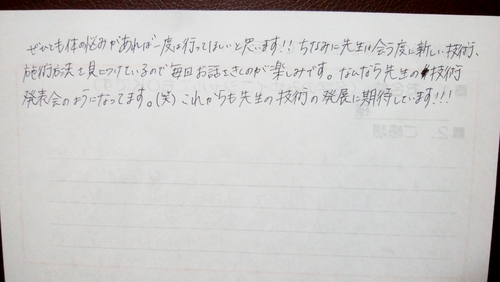 ぜひとも体の悩みがあれば一度は行ってほしいと思います!! ちなみに先生は会う度に新しい技術、
施術方法を身につけているので毎回お話をきくのが楽しみです。なんなら先生の技術
発表会のようになってます。(笑) これからも先生の技術の発展に期待しています!!!